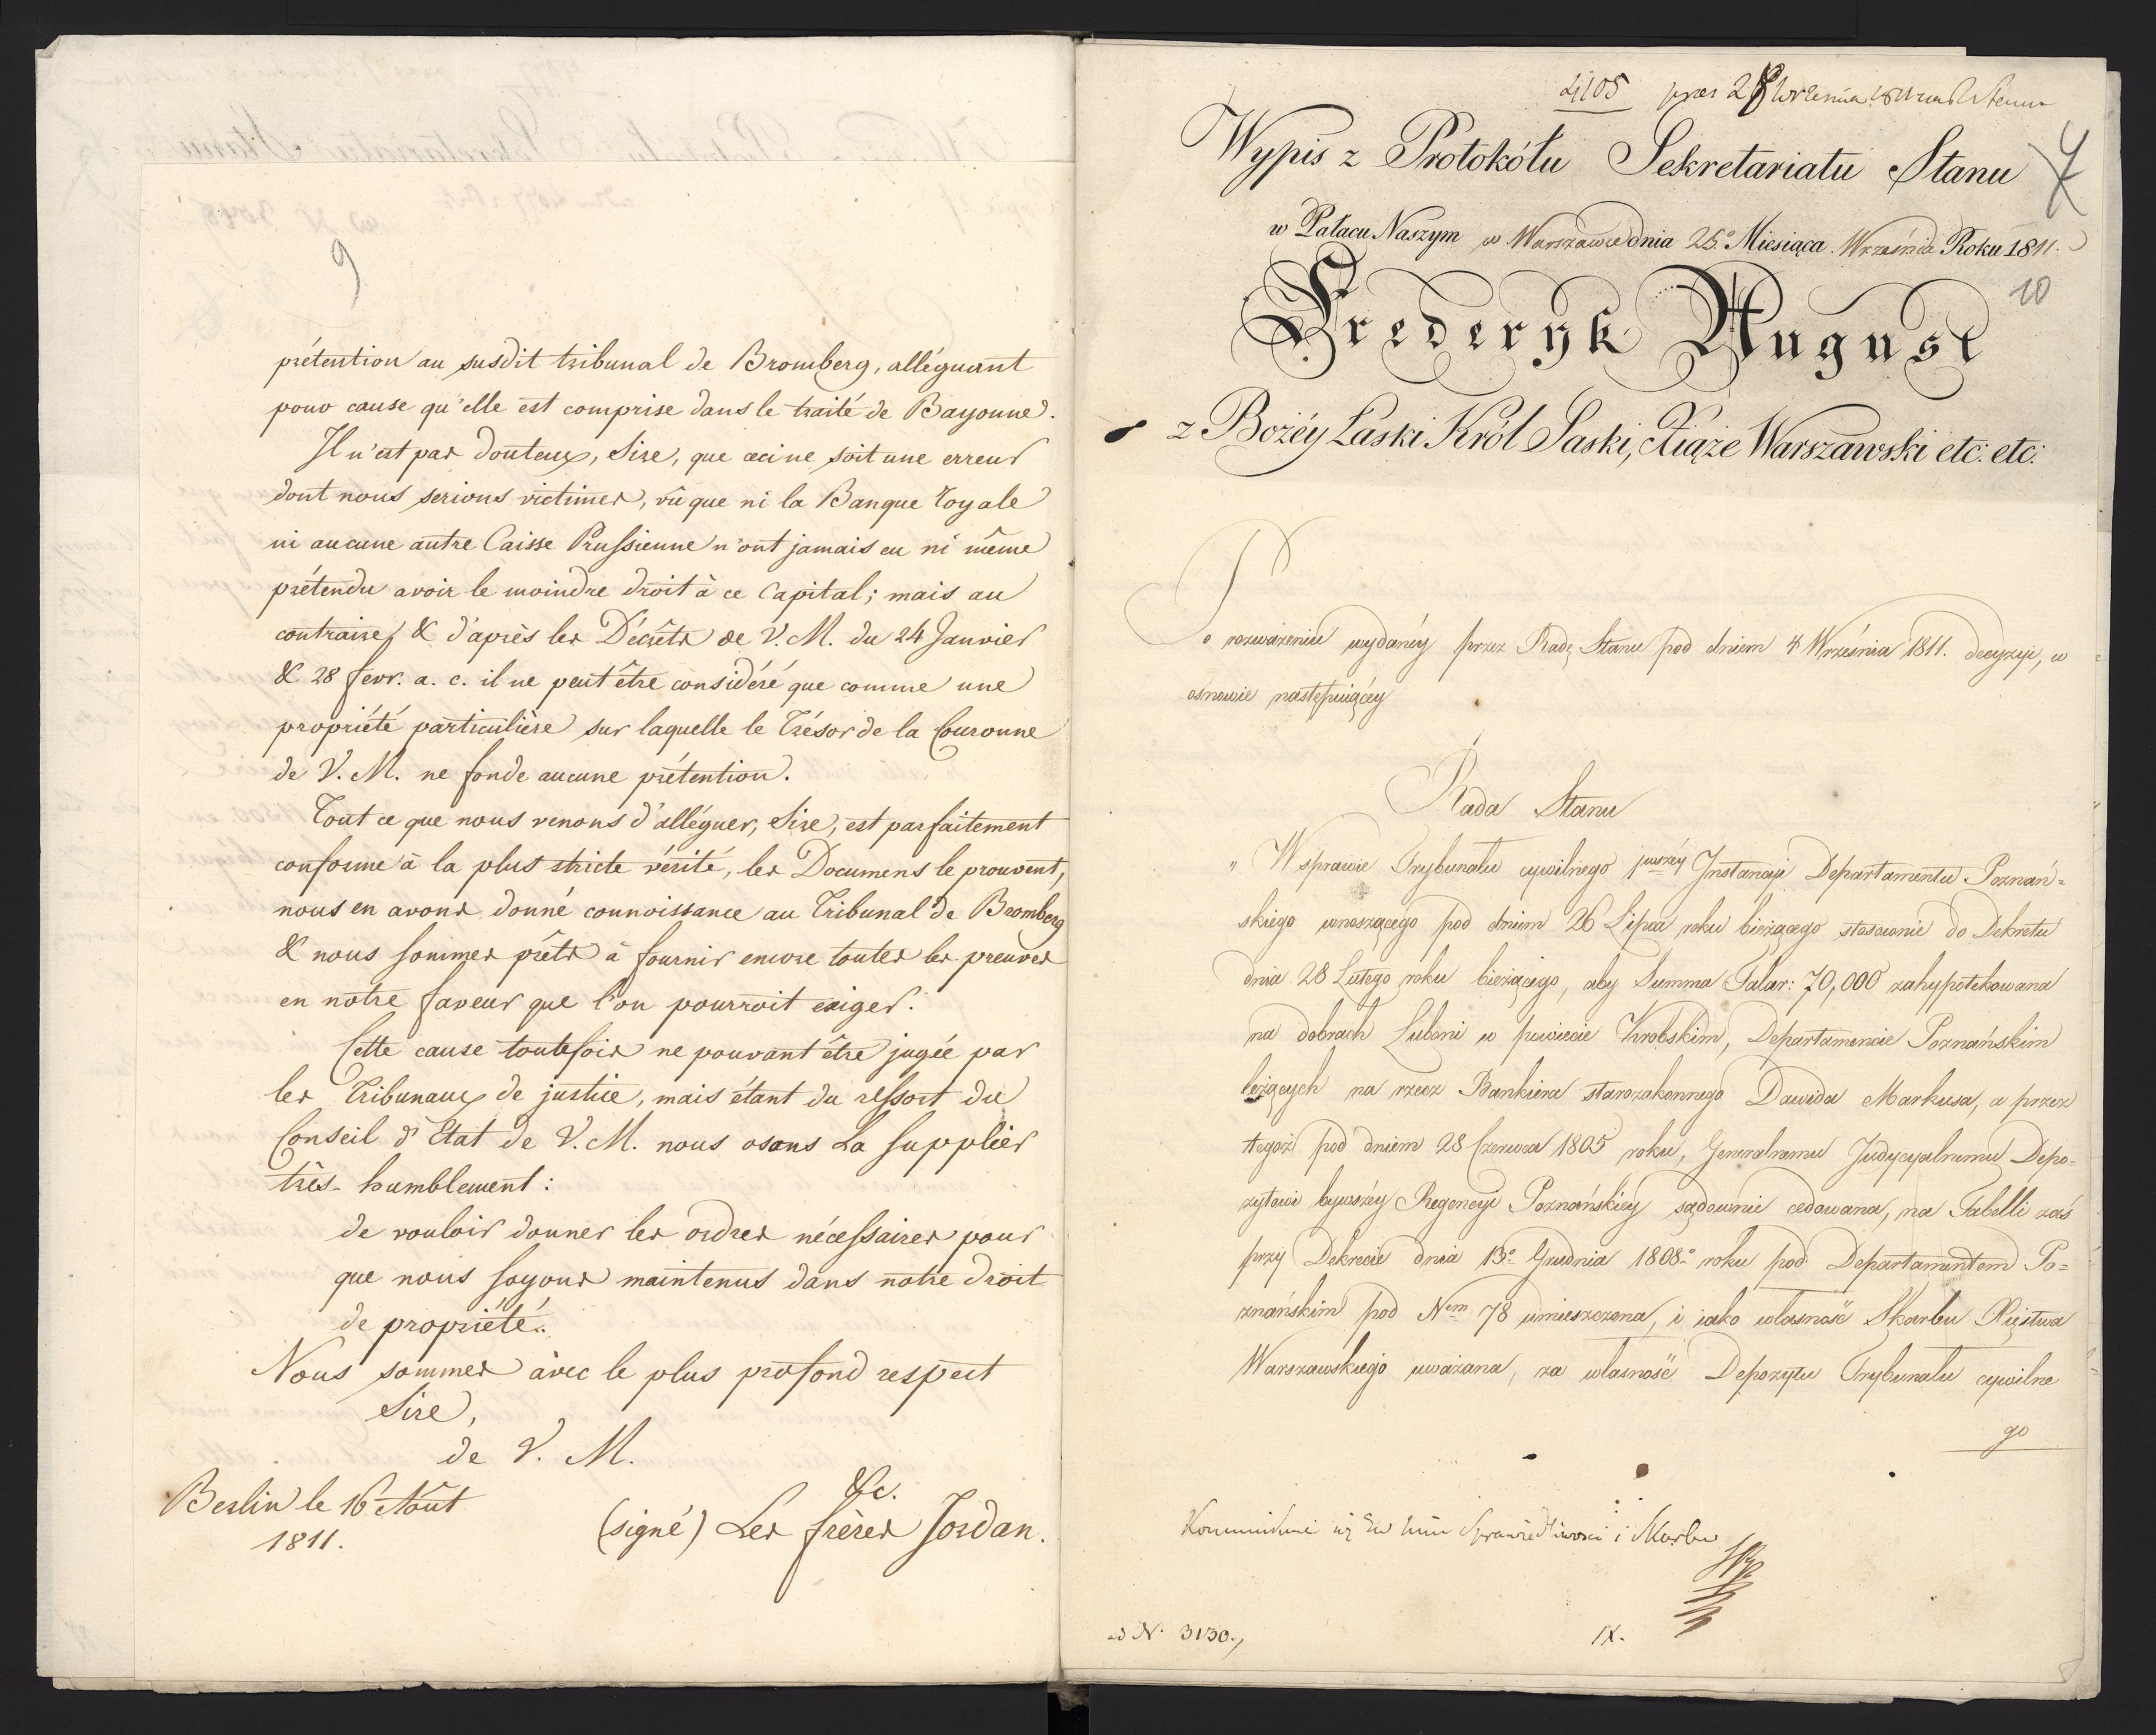 9
prétention au susdit tribunal de Bromberg, alléguant
pour cause qu'elle est comprise dans le traité de Bayonne.
Il n'est pas douteux, Sire, que ceci ne soit une erreur
dont nous serions victimes, vû que ni la Banque royale
ni aucune autre Caisse Prussienne n'ont jamais eu ni même
prétendu avoir le moindre droit à ce Capital; mais au
contraire, & d'après les Décrêts de V. M. du 24 Janvier
& 28 fevr. a. c. il ne peut être considéré que comme une
propriété particulière sur laquelle le Trésor de la Couronne
de V. M. ne fonde aucune prétention.
Tout ce que nous venons d'alléguer, Sire, est parfaitement
conforme à la plus stricte vérité, les Documens le prouvent,
nous en avons donné connoissance au Tribunal de Bromberg
& nous sommes prêts à fournir encore toutes les preuves
en notre faveur que l'on pourroit exiger.
Cette cause toutefois ne pouvant être jugée par
les Tribunaux de justice, mais étant du ressort du
Conseil d'Etat de V. M. nous osons La supplier
très-humblement:
de vouloir donner les ordres nécessaires pour
que nous soyons maintenus dans notre droit
de propriété.
Nous sommes avec le plus profond respect
Sire,
de V. M.
&c.
Berlin le 16 Août
1811.
(signé) Les frères Jordan.
4105 prez 28 Września
Wypis z Protokółu Sekretariatu Stanu
w Pałacu Naszym w Warszawie dnia 25º Miesiąca Września Roku 1811.
10
Fryderyk August
z Bożéy Łaski Król Saski, Xiąże Warszawski etc: etc:
Po rozważeniu wydanéy przez Radę Stanu pod dniem 4 Września 1811. decyzyi, w
osnowie następuiącéy
Rada Stanu
„ W sprawie Trybunału cywilnego pwszéy Instancyi Departamentu Poznań=
skiego wnoszącego pod dniem 26 Lipca roku bieżącego stosownie do Dekretu
dnia 28 Lutego roku bieżącego, aby Summa Talar: 70,000 zahypotekowana
na dobrach Luboni w powiecie Krobskim, Departamencie Poznańskim
leżących na rzecz Bankiera starozakonnego Dawida Markusa, a przez
tegoż pod dniem 28 Czerwca 1805 roku, Generalnemu Judycyalnemu Depo=
zytowi bywszéy Regencyi Poznańskiey sądownie cedowana, na Tabelli zaś
przy Dekrecie dnia 13º Grudnia 1808º roku pod Departamentem Po=
znańskim pod Nem 78 umieszczona, i iako własność Skarbu Xięstwa
Warszawskiego uważana, za własność Depozytu Trybunału cywilne
go
Sprawiedliwości i Skarbu
ad N. 3130.,
IX.